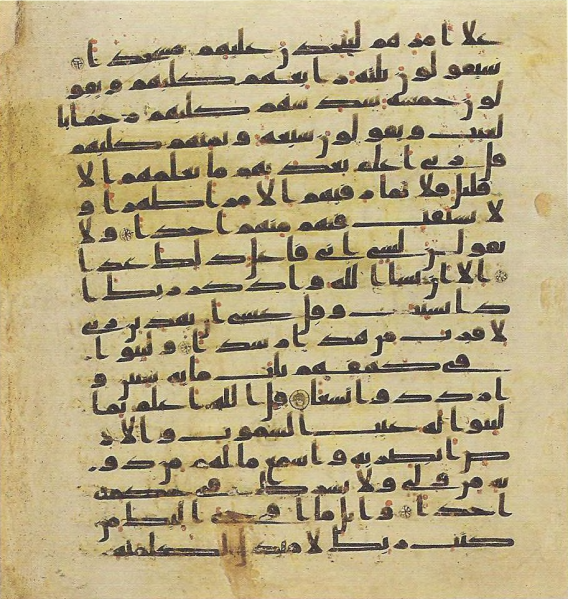 علا امرهم لنتخذن عليهم مسجدا
سيقولون ثلثه رابعهم كلبهم ويقو
لون خمسه سدسهم كلبهم رجما با
لغيب ويقولون سبعه وثمنهم كلبهم
قل ربي اعلم بعدتهم ما يعلمهم الا
قليل فلا تمار فيهم الا مرا ظهرا و
لا تستفت فيهم منهم احدا ولا
تقولن لشي اني فاعل ذلك غدا
الا ان يشا الله واذكر ربك ا
ذا نسيت وقل عسى ان يهدين ربي
لاقرب من هذا رشدا ولبثوا
في كهفهم ثلث مايه سنين و
ازددوا تسعا قل الله اعلم بما
لبثوا له غيب السموت والار
ض ابصر به واسمع ما لهم من دو
نه من ولي ولا يشرك في حكمه
احدا واتل ما اوحي اليك من
كتب ربك لا مبدل لكلمته